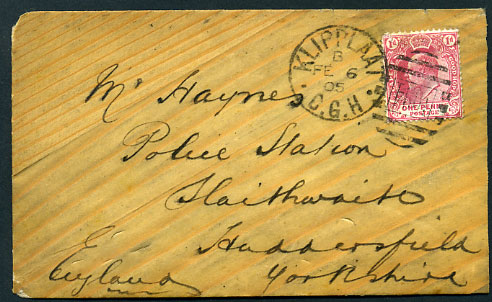 KLIPPLAAT
B
FE 6
05
C.G.H.
1d 1d
ONE PENNY
POSTAGE
Mr Haynes
Police Station
Slaithwaite
Huddersfield
England Yorkshire